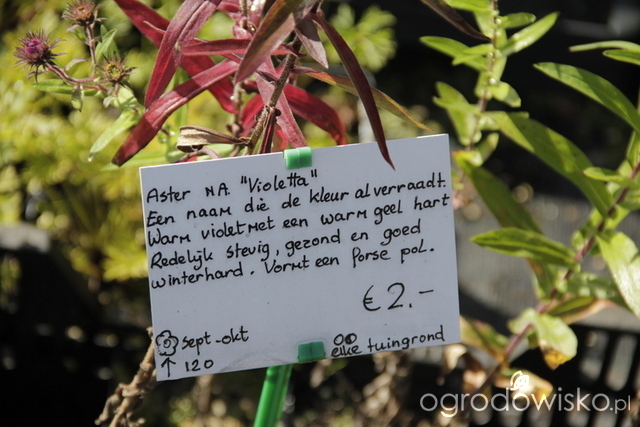 Aster N.A. "Violetta"
Een naam die de kleur al verraadt.
Warm violet met een warm geel hart
Redelijk stevig, gezond en goed
winterhard. Vormt een forse pol.
€ 2.-
sept-okt
↑ 120
elke tuingrond
ogrodowisko.pl